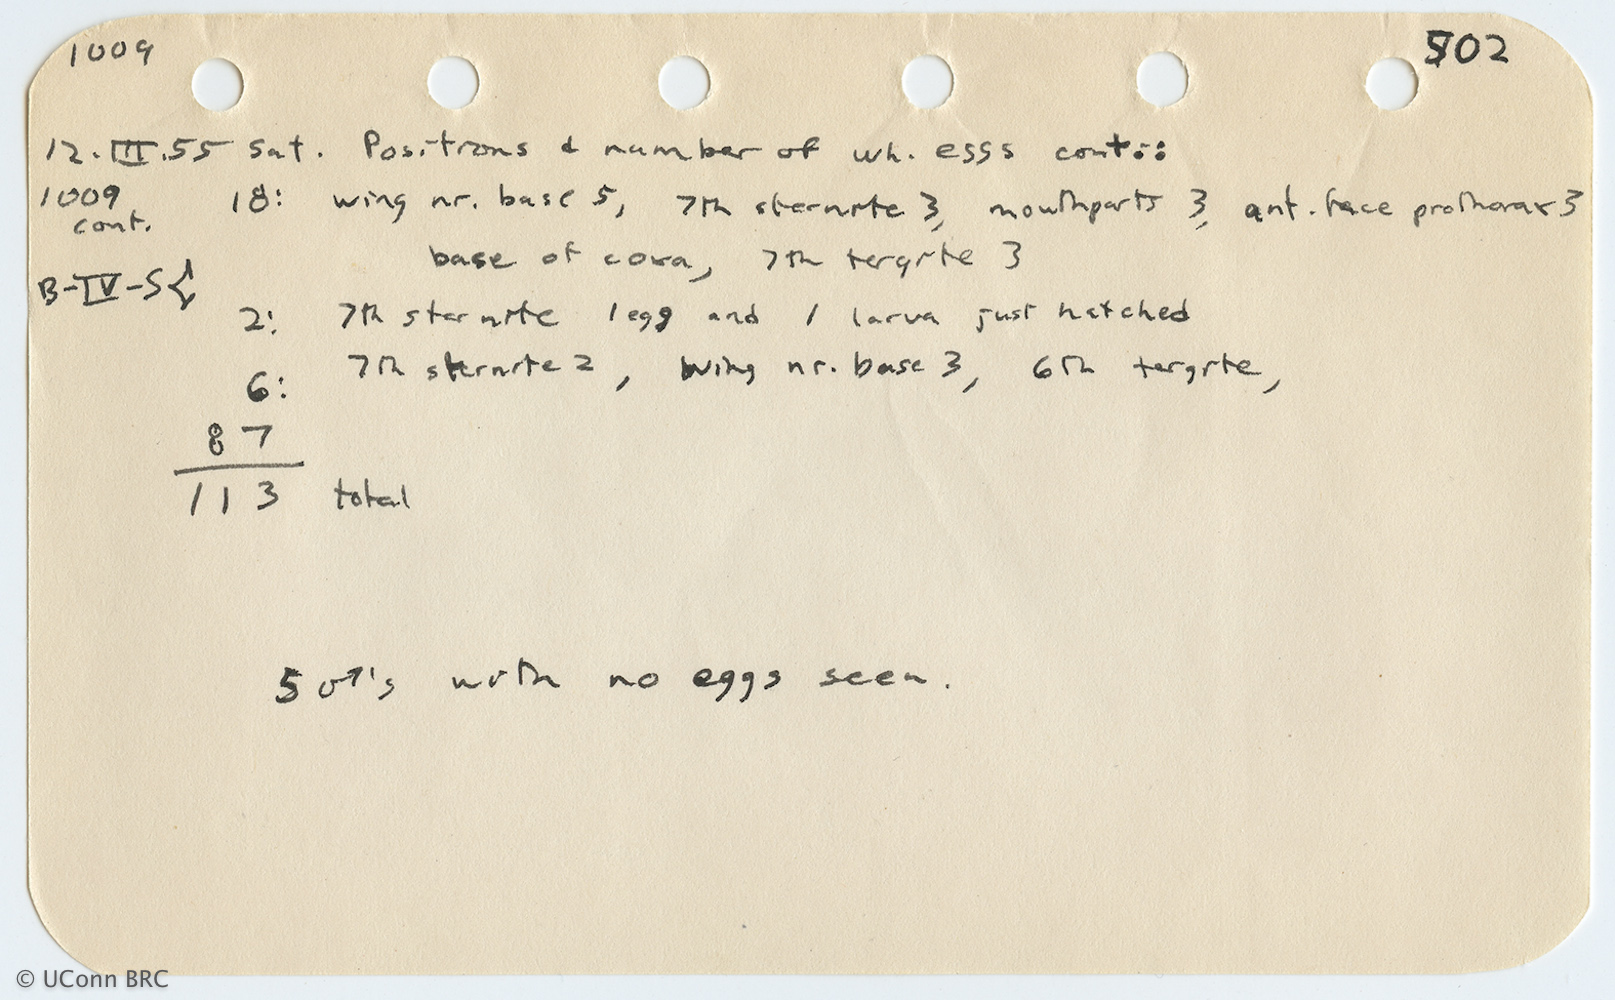 1009 502
12.III.55 Sat. Positions & number of wh. eggs cont.::
1009 cont. 18: wing nr. base 5, 7th sternite 3, mouthparts 3, ant. face prothorax 3
base of coxa, 7th tergite 3
B-IV-5
2: 7th sternite 1 egg and 1 larva just hatched
6: 7th sternite 2, wing nr. base 3, 6th tergite,
87
113 total
5 ♂'s with no eggs seen.
© UConn BRC